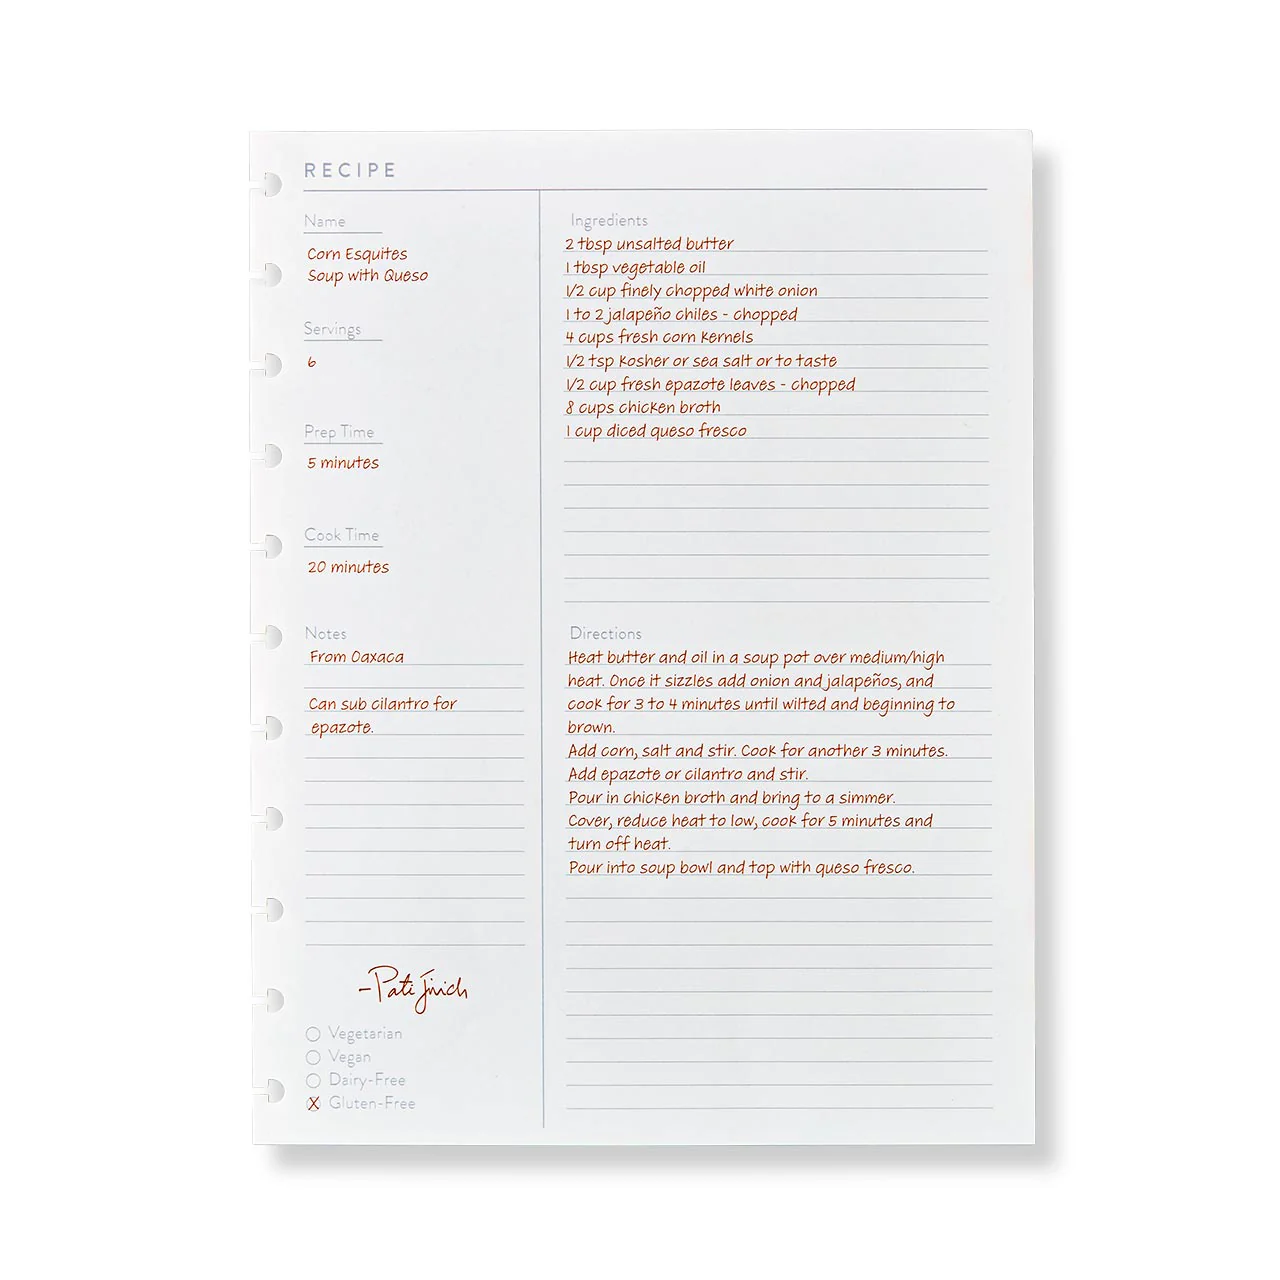 RECIPE
Name
Corn Esquites
Soup with Queso
Servings
6
Prep Time
5 minutes
Cook Time
20 minutes
Notes
From Oaxaca
Can sub cilantro for
epazote.
-Pati Jinich
Vegetarian
Vegan
Dairy-Free
X Gluten-Free
Ingredients
2 tbsp unsalted butter
1 tbsp vegetable oil
1/2 cup finely chopped white onion
1 to 2 jalapeño chiles - chopped
4 cups fresh corn kernels
1/2 tsp kosher or sea salt or to taste
1/2 cup fresh epazote leaves - chopped
8 cups chicken broth
1 cup diced queso fresco
Directions
Heat butter and oil in a soup pot over medium/high
heat. Once it sizzles add onion and jalapeños, and
cook for 3 to 4 minutes until wilted and beginning to
brown.
Add corn, salt and stir. Cook for another 3 minutes.
Add epazote or cilantro and stir.
Pour in chicken broth and bring to a simmer.
Cover, reduce heat to low, cook for 5 minutes and
turn off heat.
Pour into soup bowl and top with queso fresco.